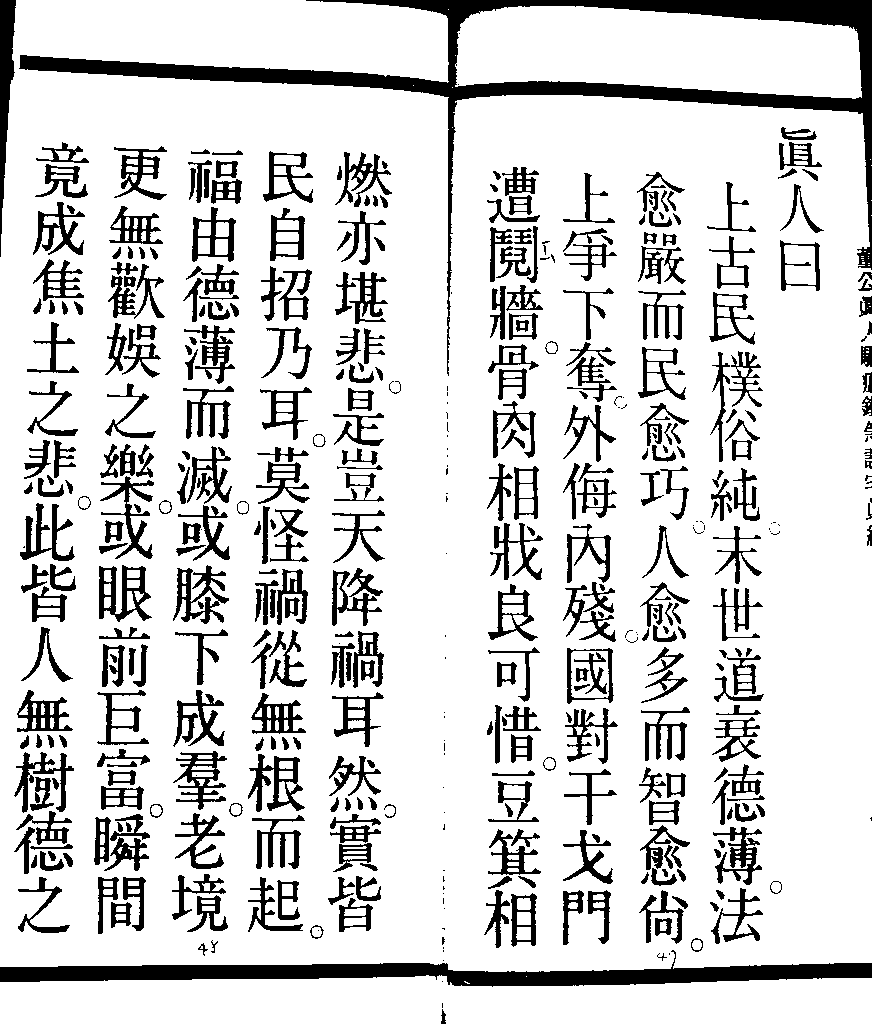 眞人曰
上古民樸俗純。末世道衰德薄。法
愈嚴而民愈巧。人愈多而智愈尙。
上爭下奪。外侮內殘。國對干戈。門
遭鬩牆。骨肉相戕良可惜。豆箕相
燃亦堪悲。是豈天降禍耳然。實皆
民自招乃耳。莫怪禍從無根而起。
福由德薄而滅。或膝下成羣。老境
更無歡娛之樂。或眼前巨富。瞬間
竟成焦土之悲。此皆人無樹德之
47
48